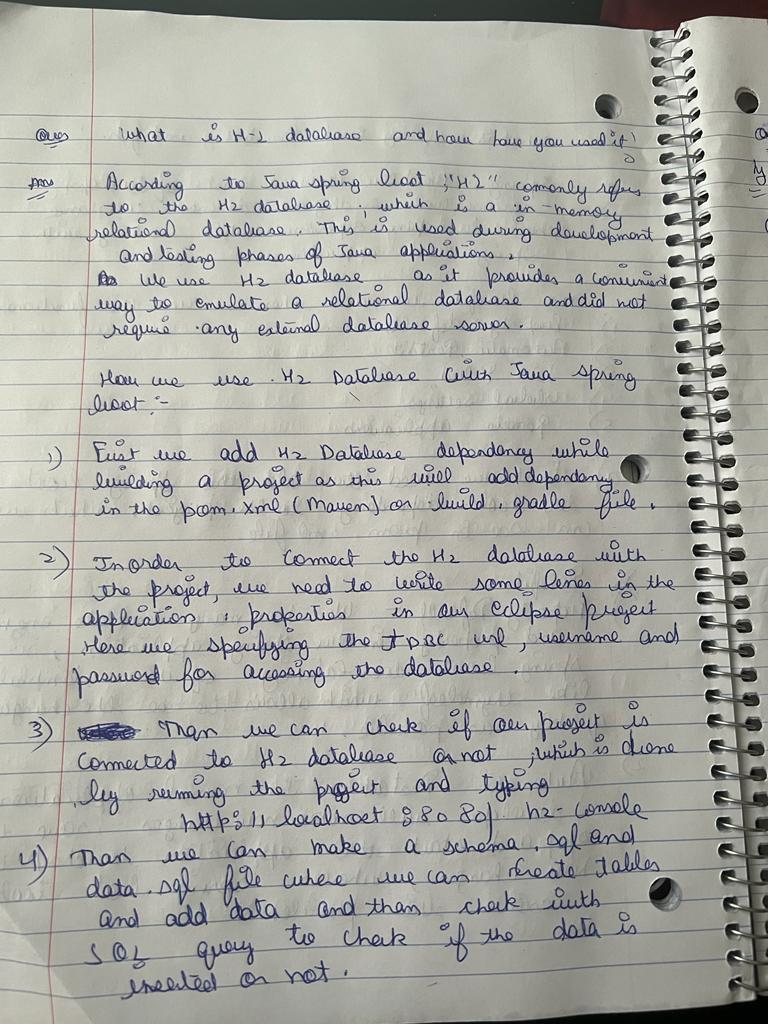 Ques What is H-2 database and how have you used it?
Ans According to Java spring boot, "H2" commonly refers
to the H2 database, which is a in-memory
relational database. This is used during development
and testing phases of Java applications.
We use H2 database as it provides a convinient
way to emulate a relational database and did not
require any external database server.
How we use H2 Database with Java spring
boot :-
1) First we add H2 Database dependancy while
building a project as this will add dependancy
in the pom.xml (Maven) or build.gradle file.
2) Inorder to connect the H2 database with
the project, we need to write some lines in the
application.properties in our eclipse project
Here we specifying the JDBC url, username and
password for accessing the database.
3) Than we can check if our project is
connected to H2 database or not, which is done
by running the project and typing
http://localhost:8080/h2-console
4) Than we can make a schema.sql and
data.sql file where we can create tables
and add data and than check with
SQL query to check if the data is
inserted or not.